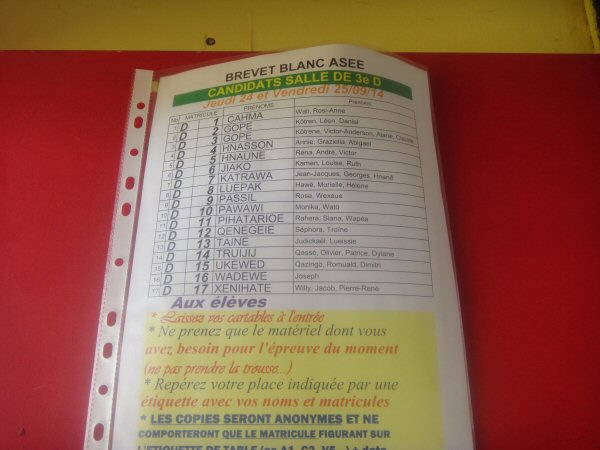 BREVET BLANC ASEE
CANDIDATS SALLE DE 3e D
Jeudi 24 et Vendredi 25/09/14
No MATRICULE PRÉNOMS PRÉNOMS
1 D 1 CAHMA Wan, Rosi-Anne
2 D 2 GOPE Kötren, Léon, Daniel
3 D 3 GOPE Kötrene, Victor-Anderson, Alane, Claude
4 D 4 HNASSON Annie, Graziella, Abigael
5 D 5 HNAUNE Réna, André, Victor
6 D 6 JIAKO Kamen, Louise, Ruth
7 D 7 KATRAWA Jean-Jacques, Georges, Hnanë
8 D 8 LUEPAK Hawé, Murielle, Hélène
9 D 9 PASSIL Rose, Wexeue
10 D 10 PAWAWI Monika, Watö
11 D 11 PIHATARIOE Rahera, Siana, Wapéa
12 D 12 QENEGEIE Séphora, Troïne
13 D 13 TAINE Judickaël, Lueissie
14 D 14 TRUIJIJ Qassö, Olivier, Patrice, Dylane
15 D 15 UKEWED Qazingö, Romuald, Dimitri
16 D 16 WADEWE Joseph
17 D 17 XENIHATE Willy, Jacob, Pierre-René
Aux élèves
* Laissez vos cartables à l'entrée
* Ne prenez que le matériel dont vous
avez besoin pour l'épreuve du moment
(ne pas prendre la trousse...)
* Repérez votre place indiquée par une
étiquette avec vos noms et matricules
* LES COPIES SERONT ANONYMES ET NE
COMPORTERONT QUE LE MATRICULE FIGURANT SUR
L'ETIQUETTE DE TABLE